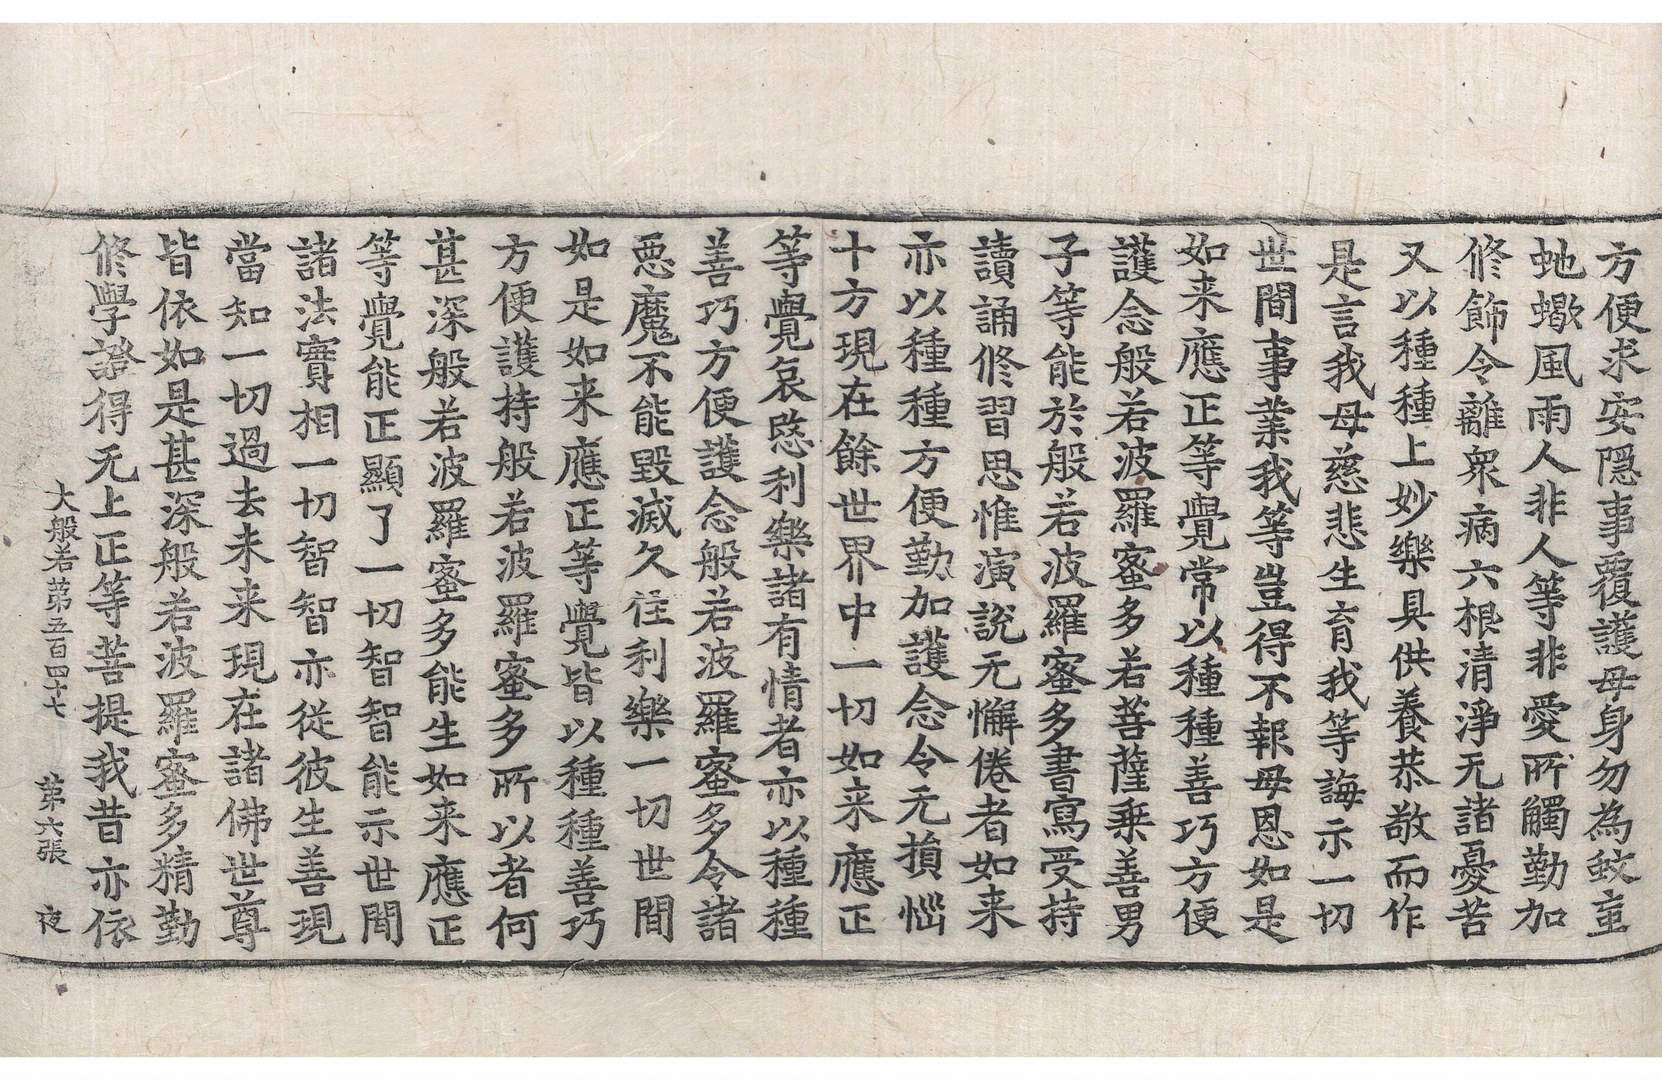 方便求安隱事覆護母身勿為蚊䖟
虵蠍風雨人非人等非愛所觸勤加
修飾令離衆病六根清淨无諸憂苦
又以種種上妙樂具供養恭敬而作
是言我母慈悲生育我等誨示一切
世間事業我等豈得不報母恩如是
如来應正等覺常以種種善巧方便
護念般若波羅蜜多若菩薩乗善男
子等能於般若波羅蜜多書寫受持
讀誦修習思惟演說无懈倦者如来
亦以種種方便勤加護念令无損惱
十方現在餘世界中一切如来應正
等覺哀愍利樂諸有情者亦以種種
善巧方便護念般若波羅蜜多令諸
惡魔不能毀滅久住利樂一切世間
如是如来應正等覺皆以種種善巧
方便護持般若波羅蜜多所以者何
甚深般若波羅蜜多能生如来應正
等覺能正顯了一切智智能示世間
諸法實相一切智智亦從彼生善現
當知一切過去未来現在諸佛世尊
皆依如是甚深般若波羅蜜多精勤
修學證得无上正等菩提我昔亦依
大般若第五百四十七 第六張 夜